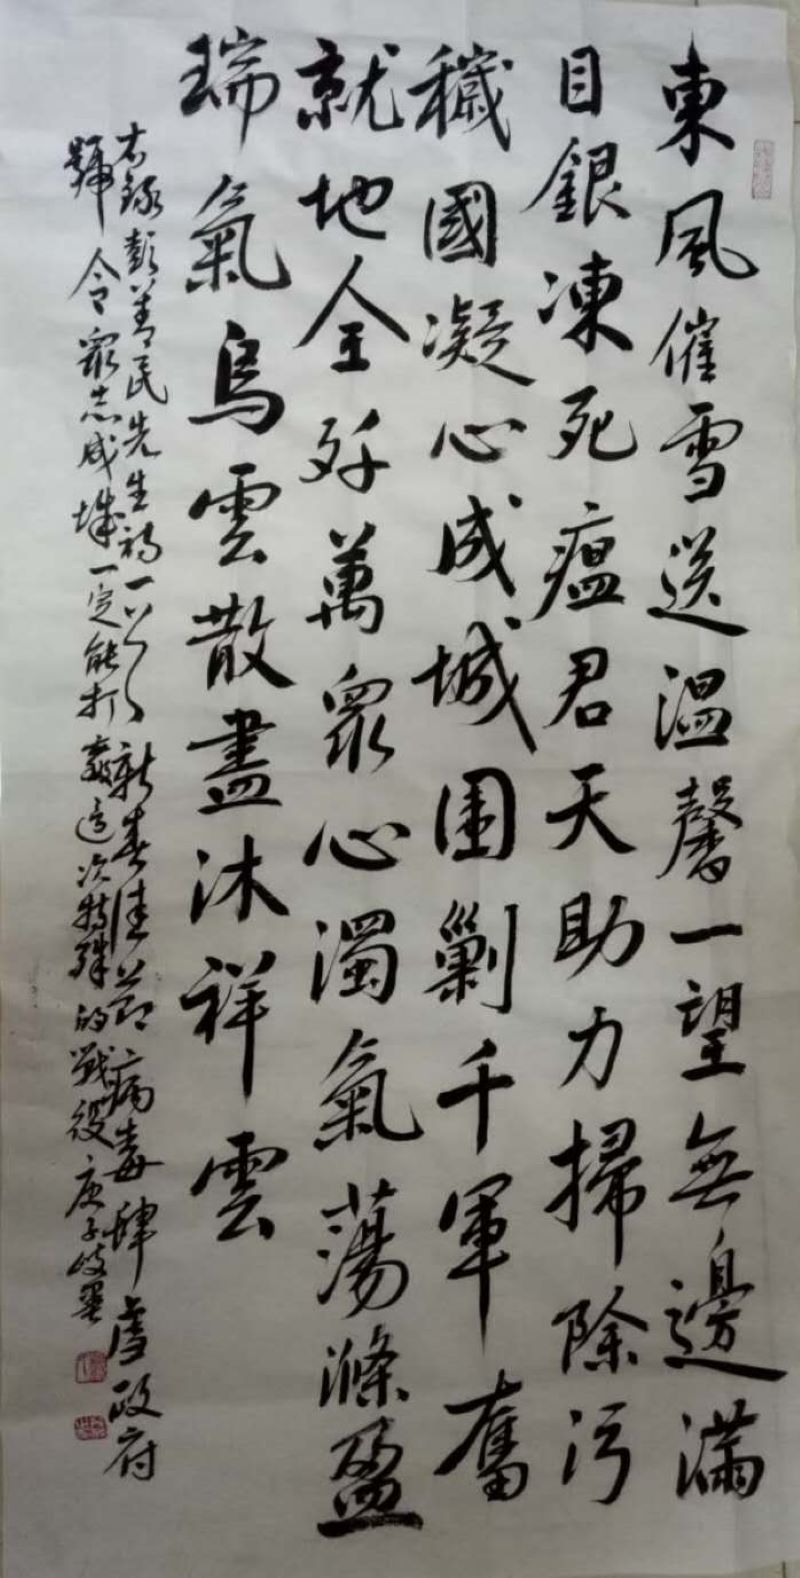 東風催雪送溫馨一望無邊滿
目銀凍死瘟君天助力掃除污
穢國凝心成城圍剿千軍奮
就地全歼萬眾心濁氣蕩滌盈
瑞氣烏雲散盡沐祥雲
右錄彭善民先生詩一首 新春佳節病毒肆虐政府
號令眾志成城一定能打贏這次特殊的戰役庚子